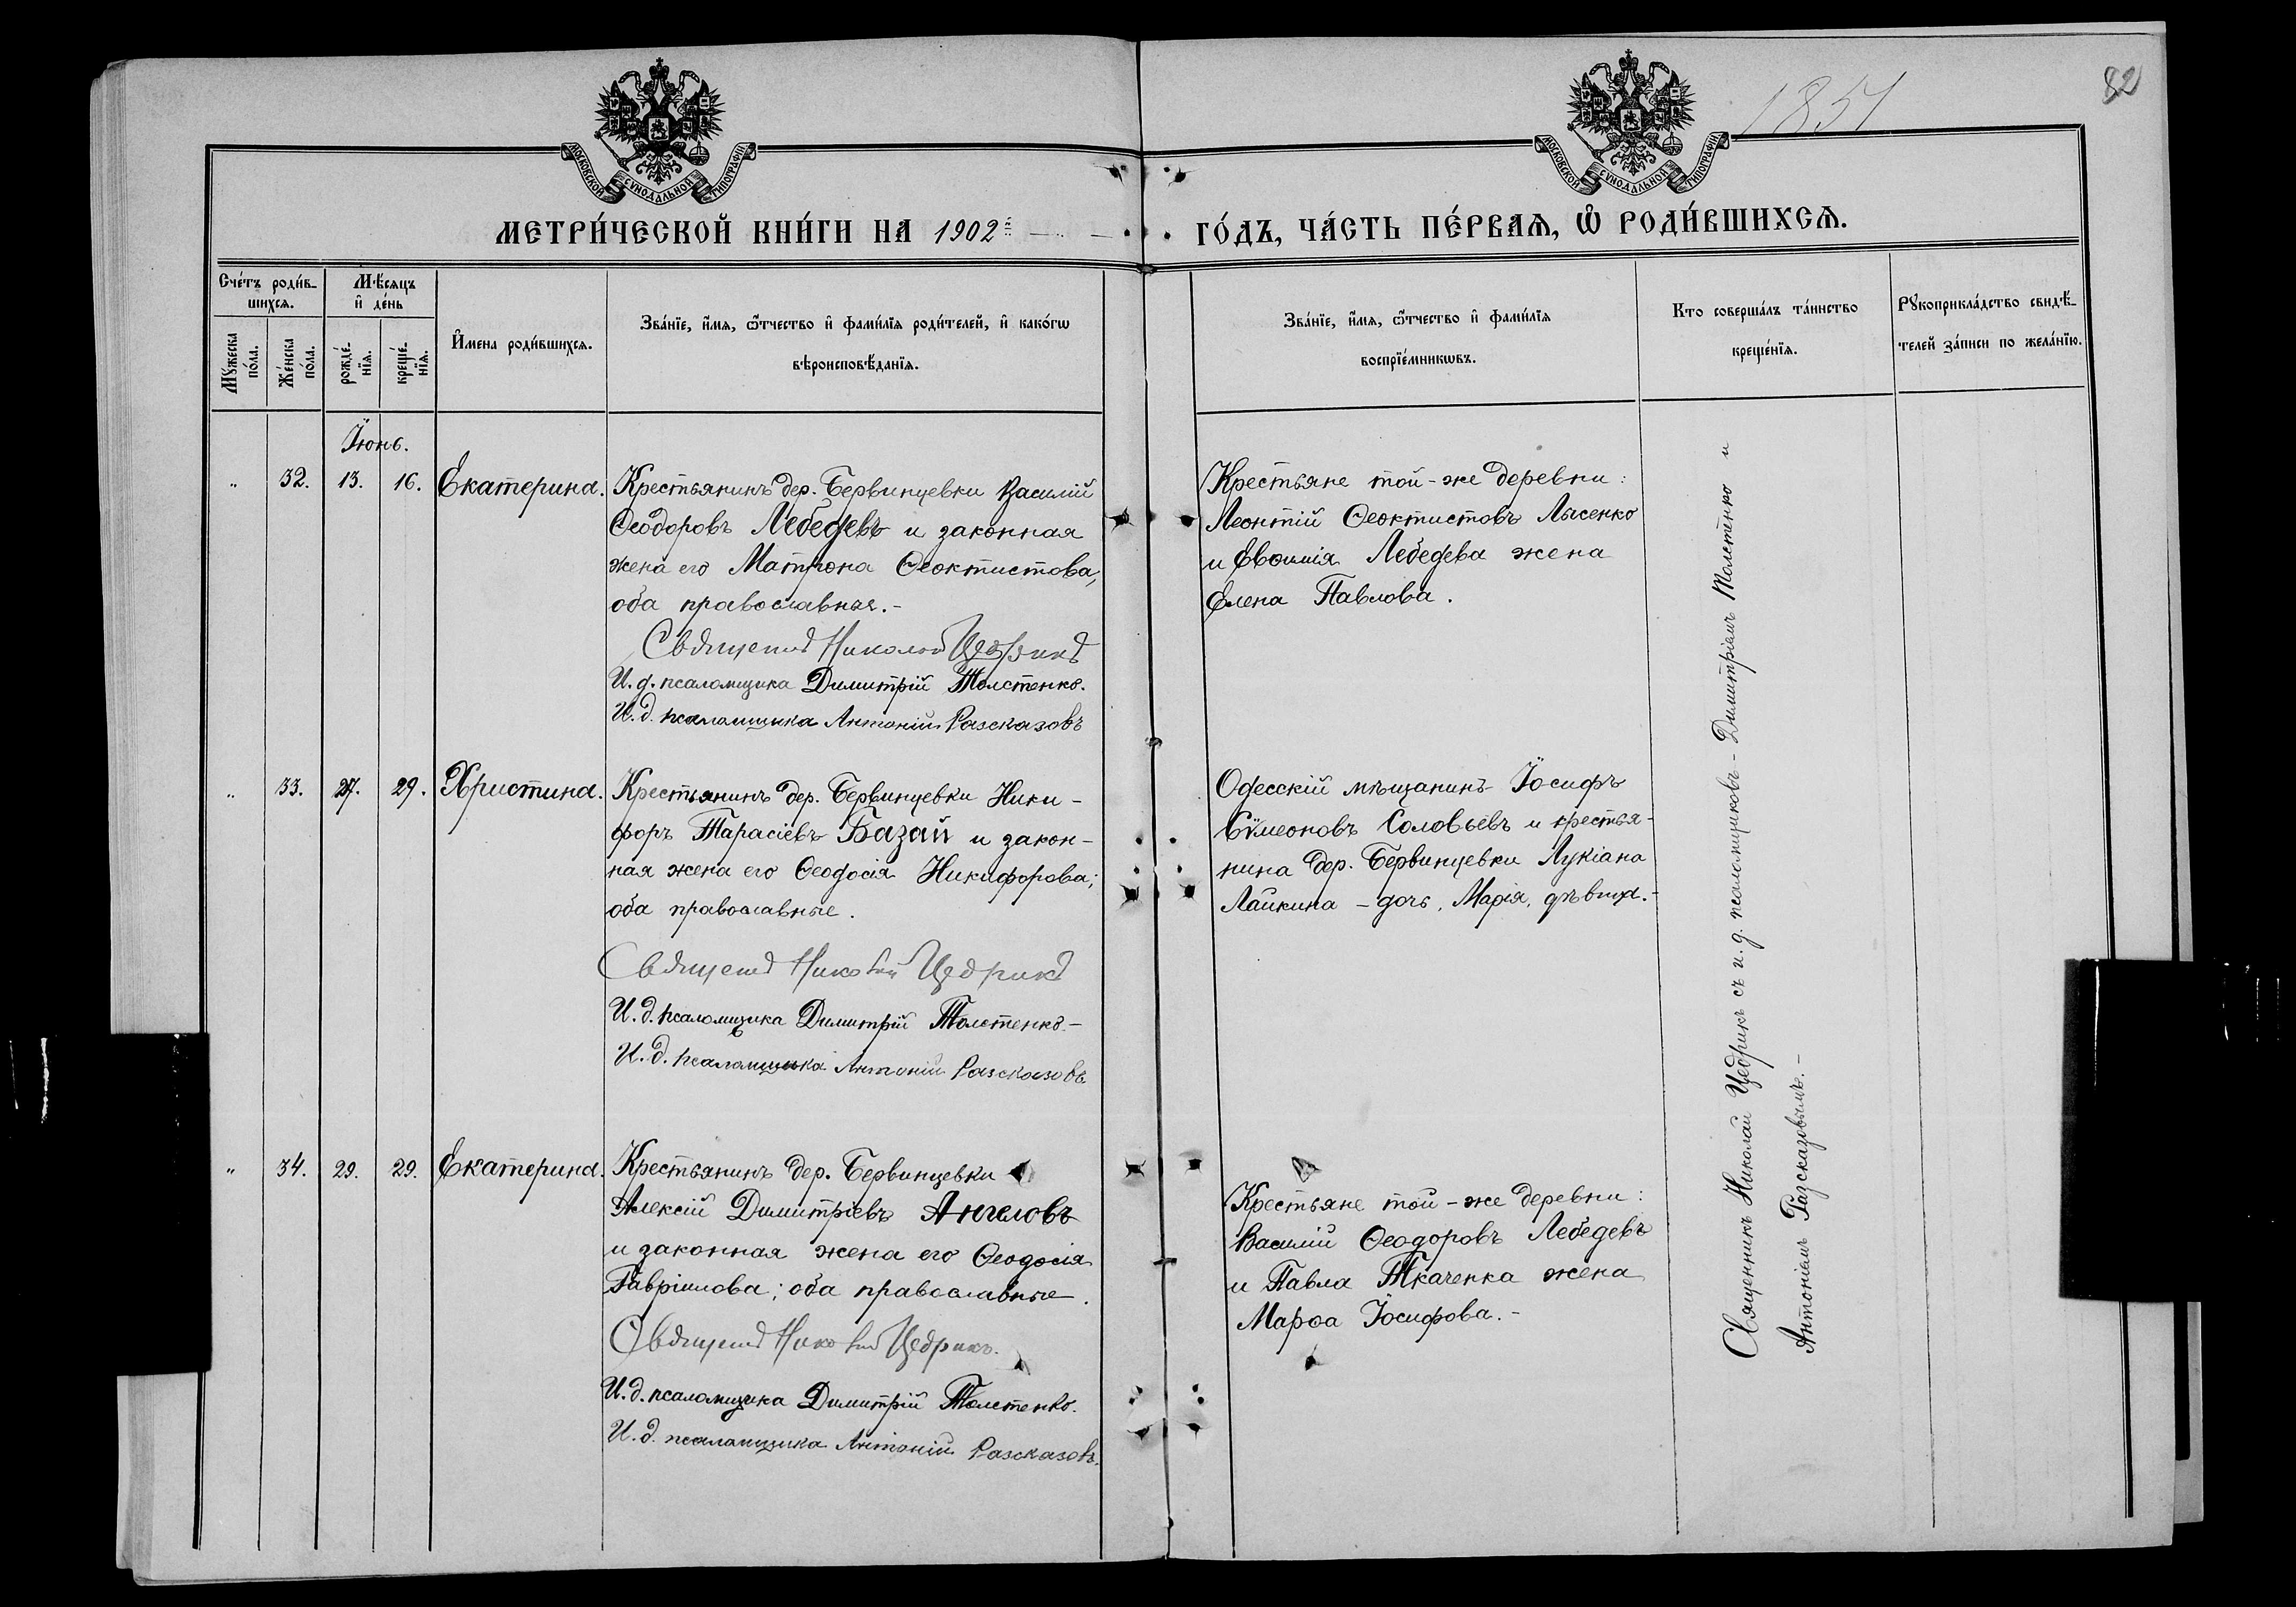 82
1851
МОСКОВСКОЙ СѴНОДАЛЬНОЙ ТИПОГРАФІИ
МОСКОВСКОЙ СѴНОДАЛЬНОЙ ТИПОГРАФІИ
МЕТРИ́ЧЕСКОЙ КНИ́ГИ НА 1902й
ГО́ДЪ, ЧА́СТЬ ПЕ́РВАѦ, Ѡ҆ РОДИ́ВШИХСѦ.
Сче́тъ роди́в-
шихсѧ.
Мꙋ́жеска
по́ла.
Же́нска
по́ла.
Мѣ́сѧцъ
и҆ де́нь
рожде́-
нїѧ.
креще́-
нїѧ.
И҆мена роди́вшихсѧ.
Зва́нїе, и҆́мѧ, ѻ҆́тчество и҆ фами́лїѧ роди́телей, и҆ како́гѡ
вѣроисповѣ́данїѧ.
Зва́нїе, и҆́мѧ, ѻ҆́тчество и҆ фами́лїѧ
воспрїе́мникѡвъ.
Кто соверша́лъ та́инство
креще́нїѧ.
Рꙋкоприкла́дство свидѣ́-
телей за́писи по жела́нїю.
Іюнь.
" 32. 13. 16. Екатерина.
Крестьянинъ дер. Бервинцевки Василій
Ѳеодоровъ Лебедевъ и законная
жена его Матрона Ѳеоктистова;
оба православные.-
Священикъ Николай Цедрикъ
И. д. псаломщика Димитрій Толстенко.
И. д. псаломщика Антоній Разсказовъ
Крестьяне той-же деревни:
Леонтій Ѳеоктистовъ Лысенко
и Евѳимія Лебедева жена
Елена Павлова.
" 33. 27. 29. Христина.
Крестьянинъ дер. Бервинцевки Ники-
форъ Тарасіевъ Базай и закон-
ная жена его Ѳеодосія Никифорова;
оба православные.
Священикъ Николай Цедрикъ
И. д. псаломщика Димитрій Толстенко-
И. д. псаломщика Антоній Разсказовъ
Одесскій мѣщанинъ Іосифъ
Сѷмеоновъ Соловьевъ и крестья-
нина дер. Бервинцевки Лукіана
Лайкина - дочь, Марія, дѣвица.-
" 34. 29. 29. Екатерина.
Крестьянинъ дер. Бервинцевки
Алексій Димитріевъ Ангеловъ
и законная жена его Ѳеодосія
Гавріилова; оба православные.
Священикъ Николай Цедрикъ.
И. д. псаломщика Димитрій Толстенко.
И. д. псаломщика Антоній Разсказовъ.
Крестьяне той-же деревни:
Василій Ѳеодоровъ Лебедевъ
и Павла Ткаченка жена
Марѳа Іосифова.-
Священникъ Николай Цедрикъ съ и. д. псаломщиковъ- Димитріемъ Толстенко и
Антоніемъ Разсказовымъ.-